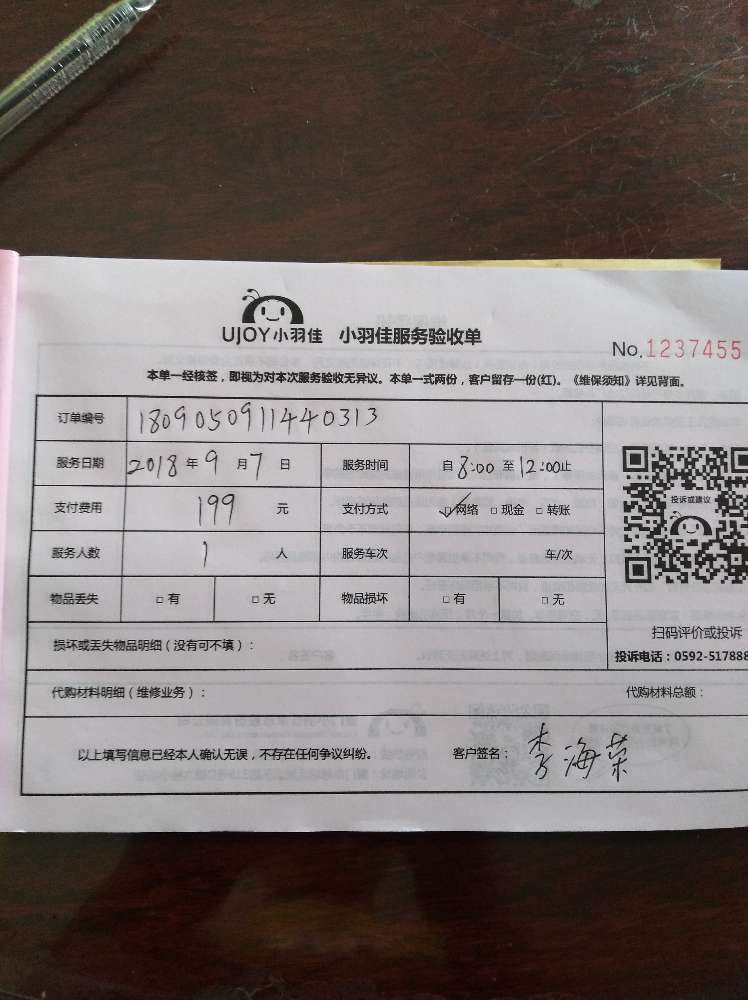 UJOY小羽佳 小羽佳服务验收单
No.1237455
本单一经核签，即视为对本次服务验收无异议。本单一式两份，客户留存一份(红)。《维保须知》详见背面。
订单编号 1809050911440313
服务日期 2018年9月7日 服务时间 自8:00至12:00止
支付费用 199 元 支付方式 ☑网络 □现金 □转账
服务人数 1 人 服务车次 车/次
物品丢失 □有 □无 物品损坏 □有 □无
投诉或建议
扫码评价或投诉
投诉电话：0592-517888
损坏或丢失物品明细（没有可不填）：
代购材料明细（维修业务）： 代购材料总额：
以上填写信息已经本人确认无误，不存在任何争议纠纷。 客户签名：李海荣